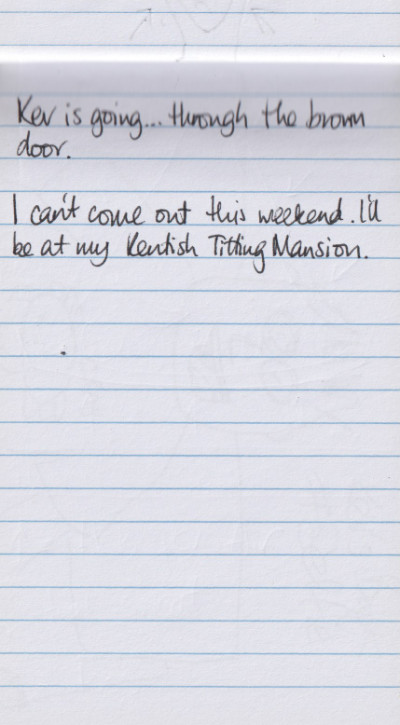 Kev is going... through the brown
door.
I can't come out this weekend. I'll
be at my Kentish Titting Mansion.